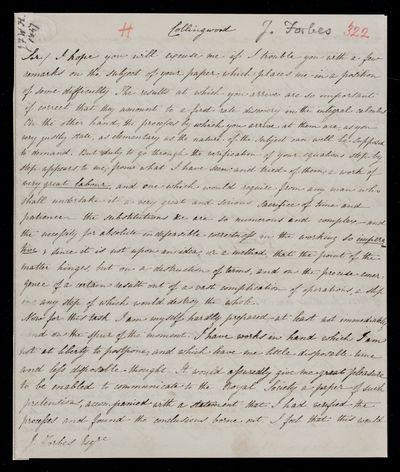 H Collingwood J. Forbes 322
Sir/ I hope you will excuse me if I trouble you with a few
remarks on the subject of your paper, which places me in a position
of some difficulty. The results at which you arrive are so important
if correct that they amount to a first rate discovery in the integral calculus
On the other hand, the processes by which you arrive at them are, as you
very justly state, as elementary as the nature of the subject can well be supposed
to demand. But duly to go through the verification of your equations step by
step appears to me, from what I have seen and tried of them, a work of
very great labour, and one which would require from any man who
shall undertake it a very great and serious sacrifice of time and
patience — the substitutions &c are so numerous and complex and
the necessity for absolute indefeasible correctness in the working so impera
tive; since it is not upon an idea, or a method, that the point of the
matter hinges, but on a destruction of terms, and on the precise emer-
gence of a certain result out of a vast complication of operations, a slip
in any step of which would destroy the whole.
Now for this task I am myself hardly prepared, at least not immediately
and on the spur of the moment. I have works in hand which I am
not at liberty to postpone, and which leave me little disposable time
and less disposable thought. It would assuredly give me great pleasure
to be enabled to communicate to the Royal Society a paper of such
pretensions, accompanied with a statement that I had verified the
processes and found the conclusions borne out. I feel that this would
J. Forbes Esqre